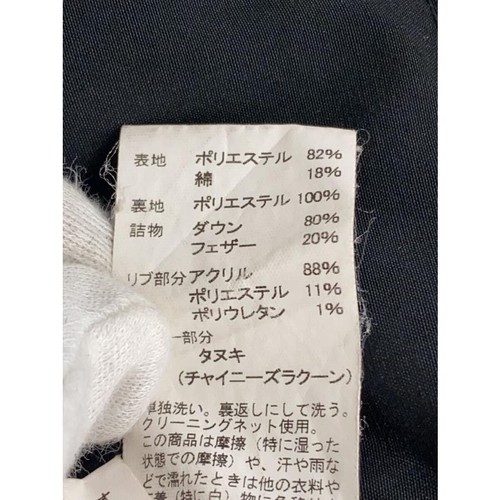 表地 ポリエステル 82%
綿 18%
裏地 ポリエステル 100%
詰物 ダウン 80%
フェザー 20%
リブ部分 アクリル 88%
ポリエステル 11%
ポリウレタン 1%
ー部分
タヌキ
(チャイニーズラクーン)
単独洗い。裏返しにして洗う。
クリーニングネット使用。
この商品は摩擦(特に湿った
状態での摩擦)や、汗や雨な
どで濡れたときは他の衣料や